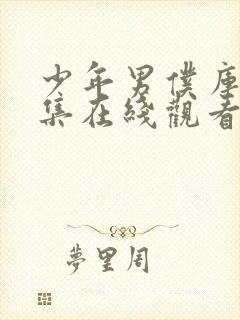 少年男僕庫
集在綫觀看
夢里周